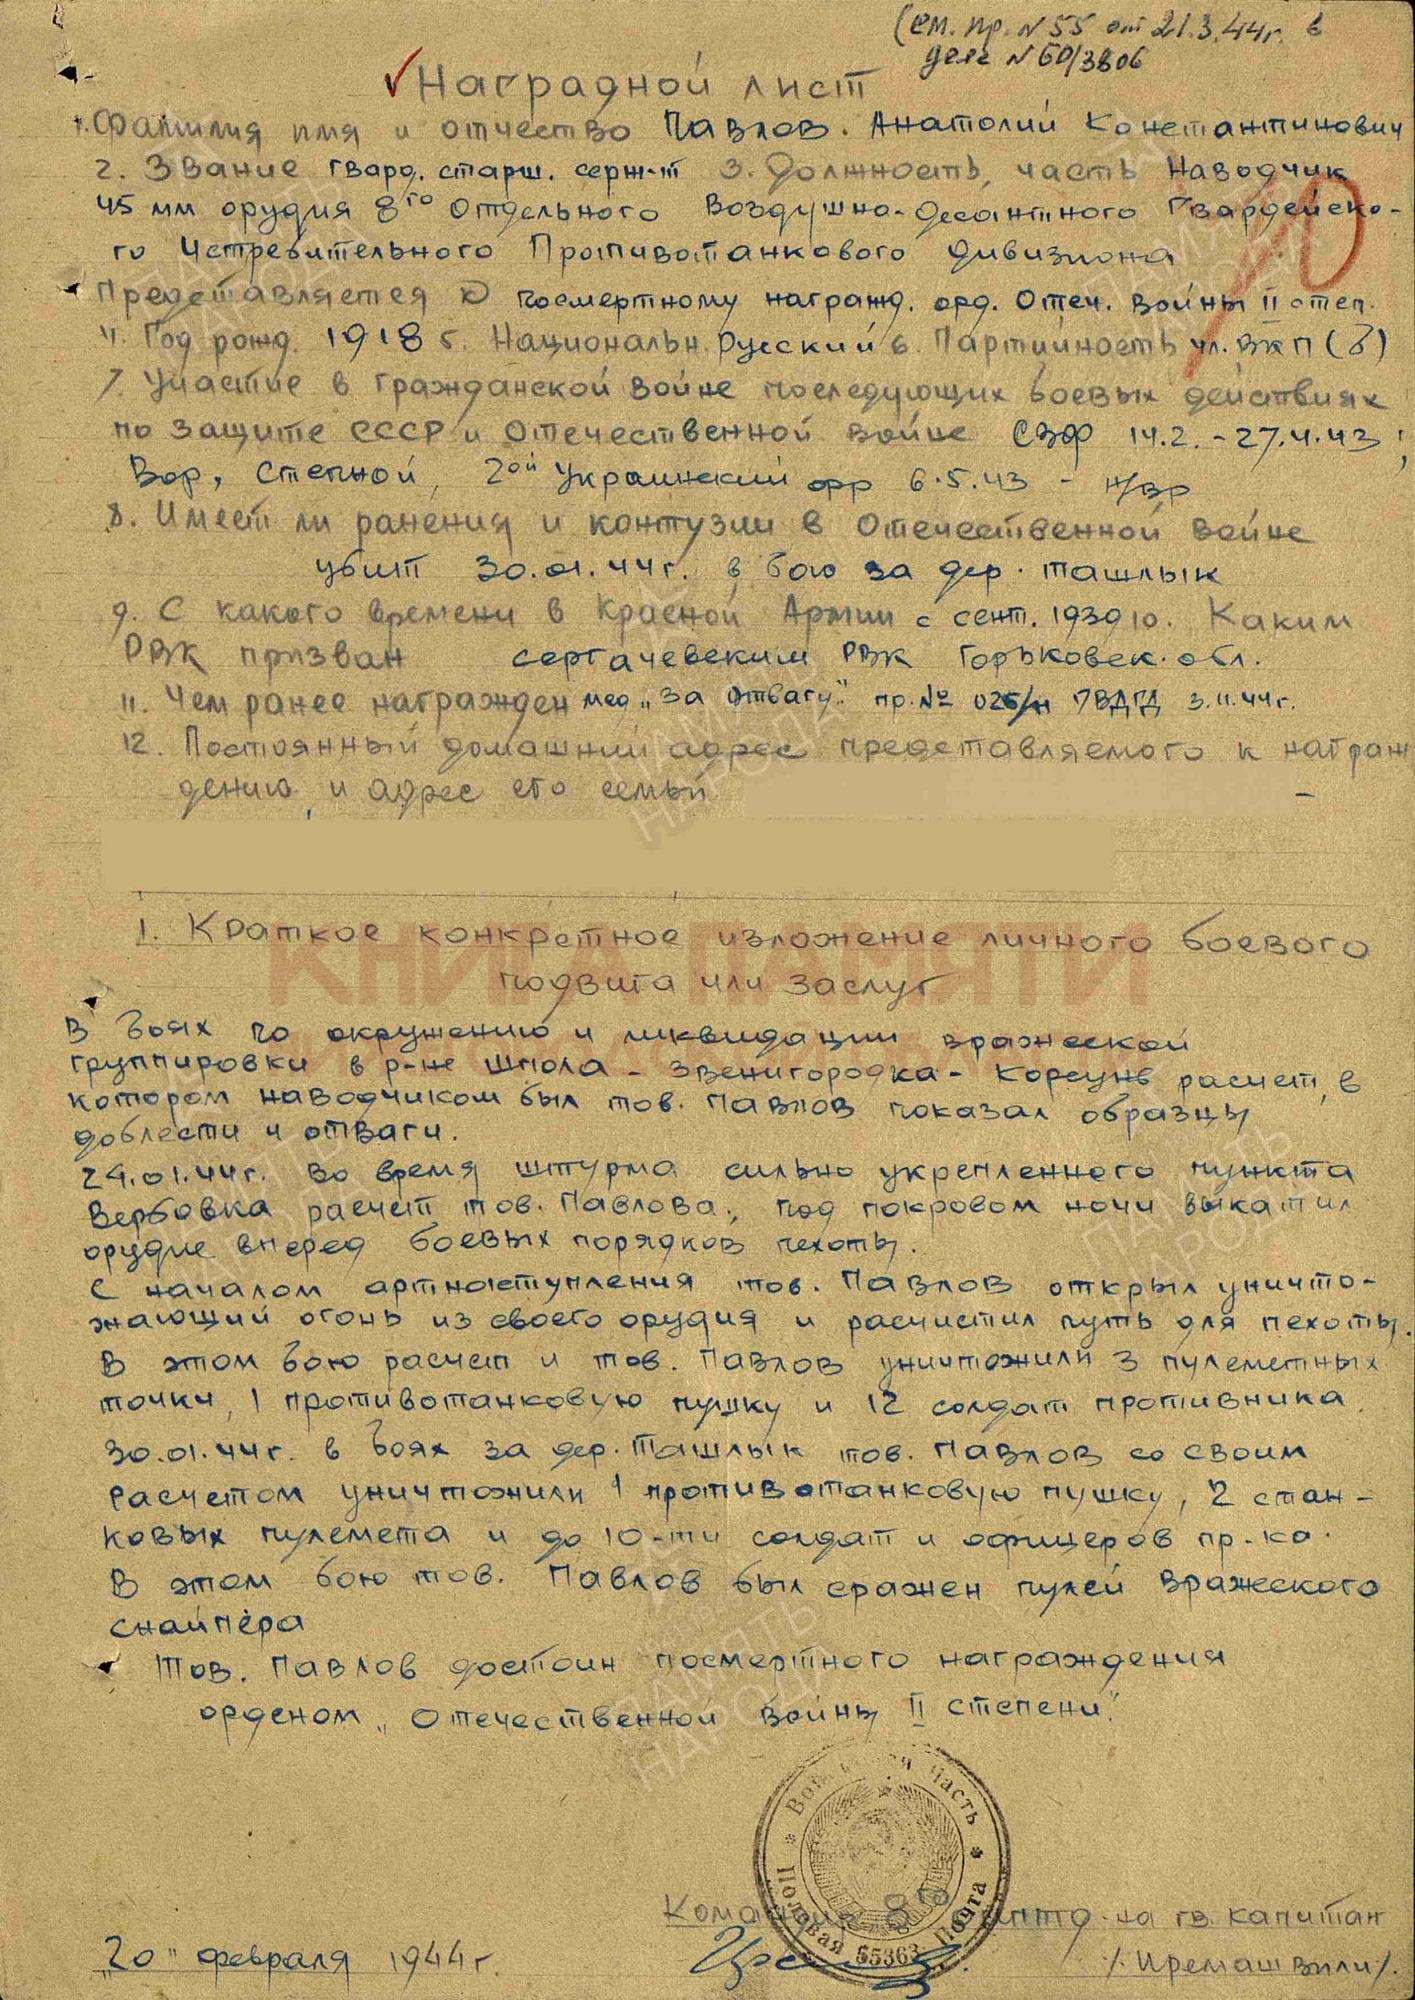 (см. пр. № 55 от 21.3.44г. в
деле № 60/3806
Наградной лист
1. Фамилия имя и отчество Павлов. Анатолий Константинович
2. Звание гвард. старш. серж-т 3. Должность, часть Наводчик
45 мм орудия 8го Отдельного Воздушно-десантного Гвардейско-
го Истребительного Противотанкового дивизиона
Представляется к посмертному награжд. орд. Отеч. войны II степ.
4. Год рожд. 1918 5. Национальн. Русский 6. Партийность чл. ВКП(б)
7. Участие в гражданской войне последующих боевых действиях
по защите СССР и Отечественной войне СЗФ 14.2.-27.4.43;
Вор, Степной, 2ой Украинский фр 6.5.43 - н/вр
8. Имеет ли ранения и контузии в Отечественной войне
убит 30.01.44г. в бою за дер. Ташлык
9. С какого времени в Красной Армии с сент. 1939 10. Каким
РВК призван сергачевским РВК Горьковск. обл.
11. Чем ранее награжден мед „За Отвагу". пр. № 026/н 7ВДГД 3.11.44г.
12. Постоянный домашний адрес представляемого к награж
дению и адрес его семьи -
1. Краткое конкретное изложение личного боевого
подвига или заслуг
КНИГА ПАМЯТИ
В боях по окружению и ликвидации вражеской
группировки в р-не Шпола - Звенигородка - Корсунь расчет, в
котором наводчиком был тов. Павлов показал образцы
доблести и отваги.
24.01.44г. Во время штурма сильно укрепленного пункта
Вербовка расчет тов. Павлова, под покровом ночи выкатил
орудие вперед боевых порядков пехоты.
С началом артнаступления тов. Павлов открыл уничто-
жающий огонь из своего орудия и расчистил путь для пехоты.
В этом бою расчет и тов. Павлов уничтожили 3 пулеметных
точки, 1 противотанковую пушку и 12 солдат противника.
30.01.44г. в боях за дер. Ташлык тов. Павлов со своим
расчетом уничтожили 1 противотанковую пушку, 2 стан-
ковых пулемета и до 10-ти солдат и офицеров пр-ка.
В этом бою тов. Павлов был сражен пулей вражеского
снайпера
Тов. Павлов достоин посмертного награждения
орденом „Отечественной Войны II степени".
Войсковая часть
Полевая Почта
55363
Командир 8го иптд-на гв. капитан
„20" февраля 1944г. /Иремашвили/.